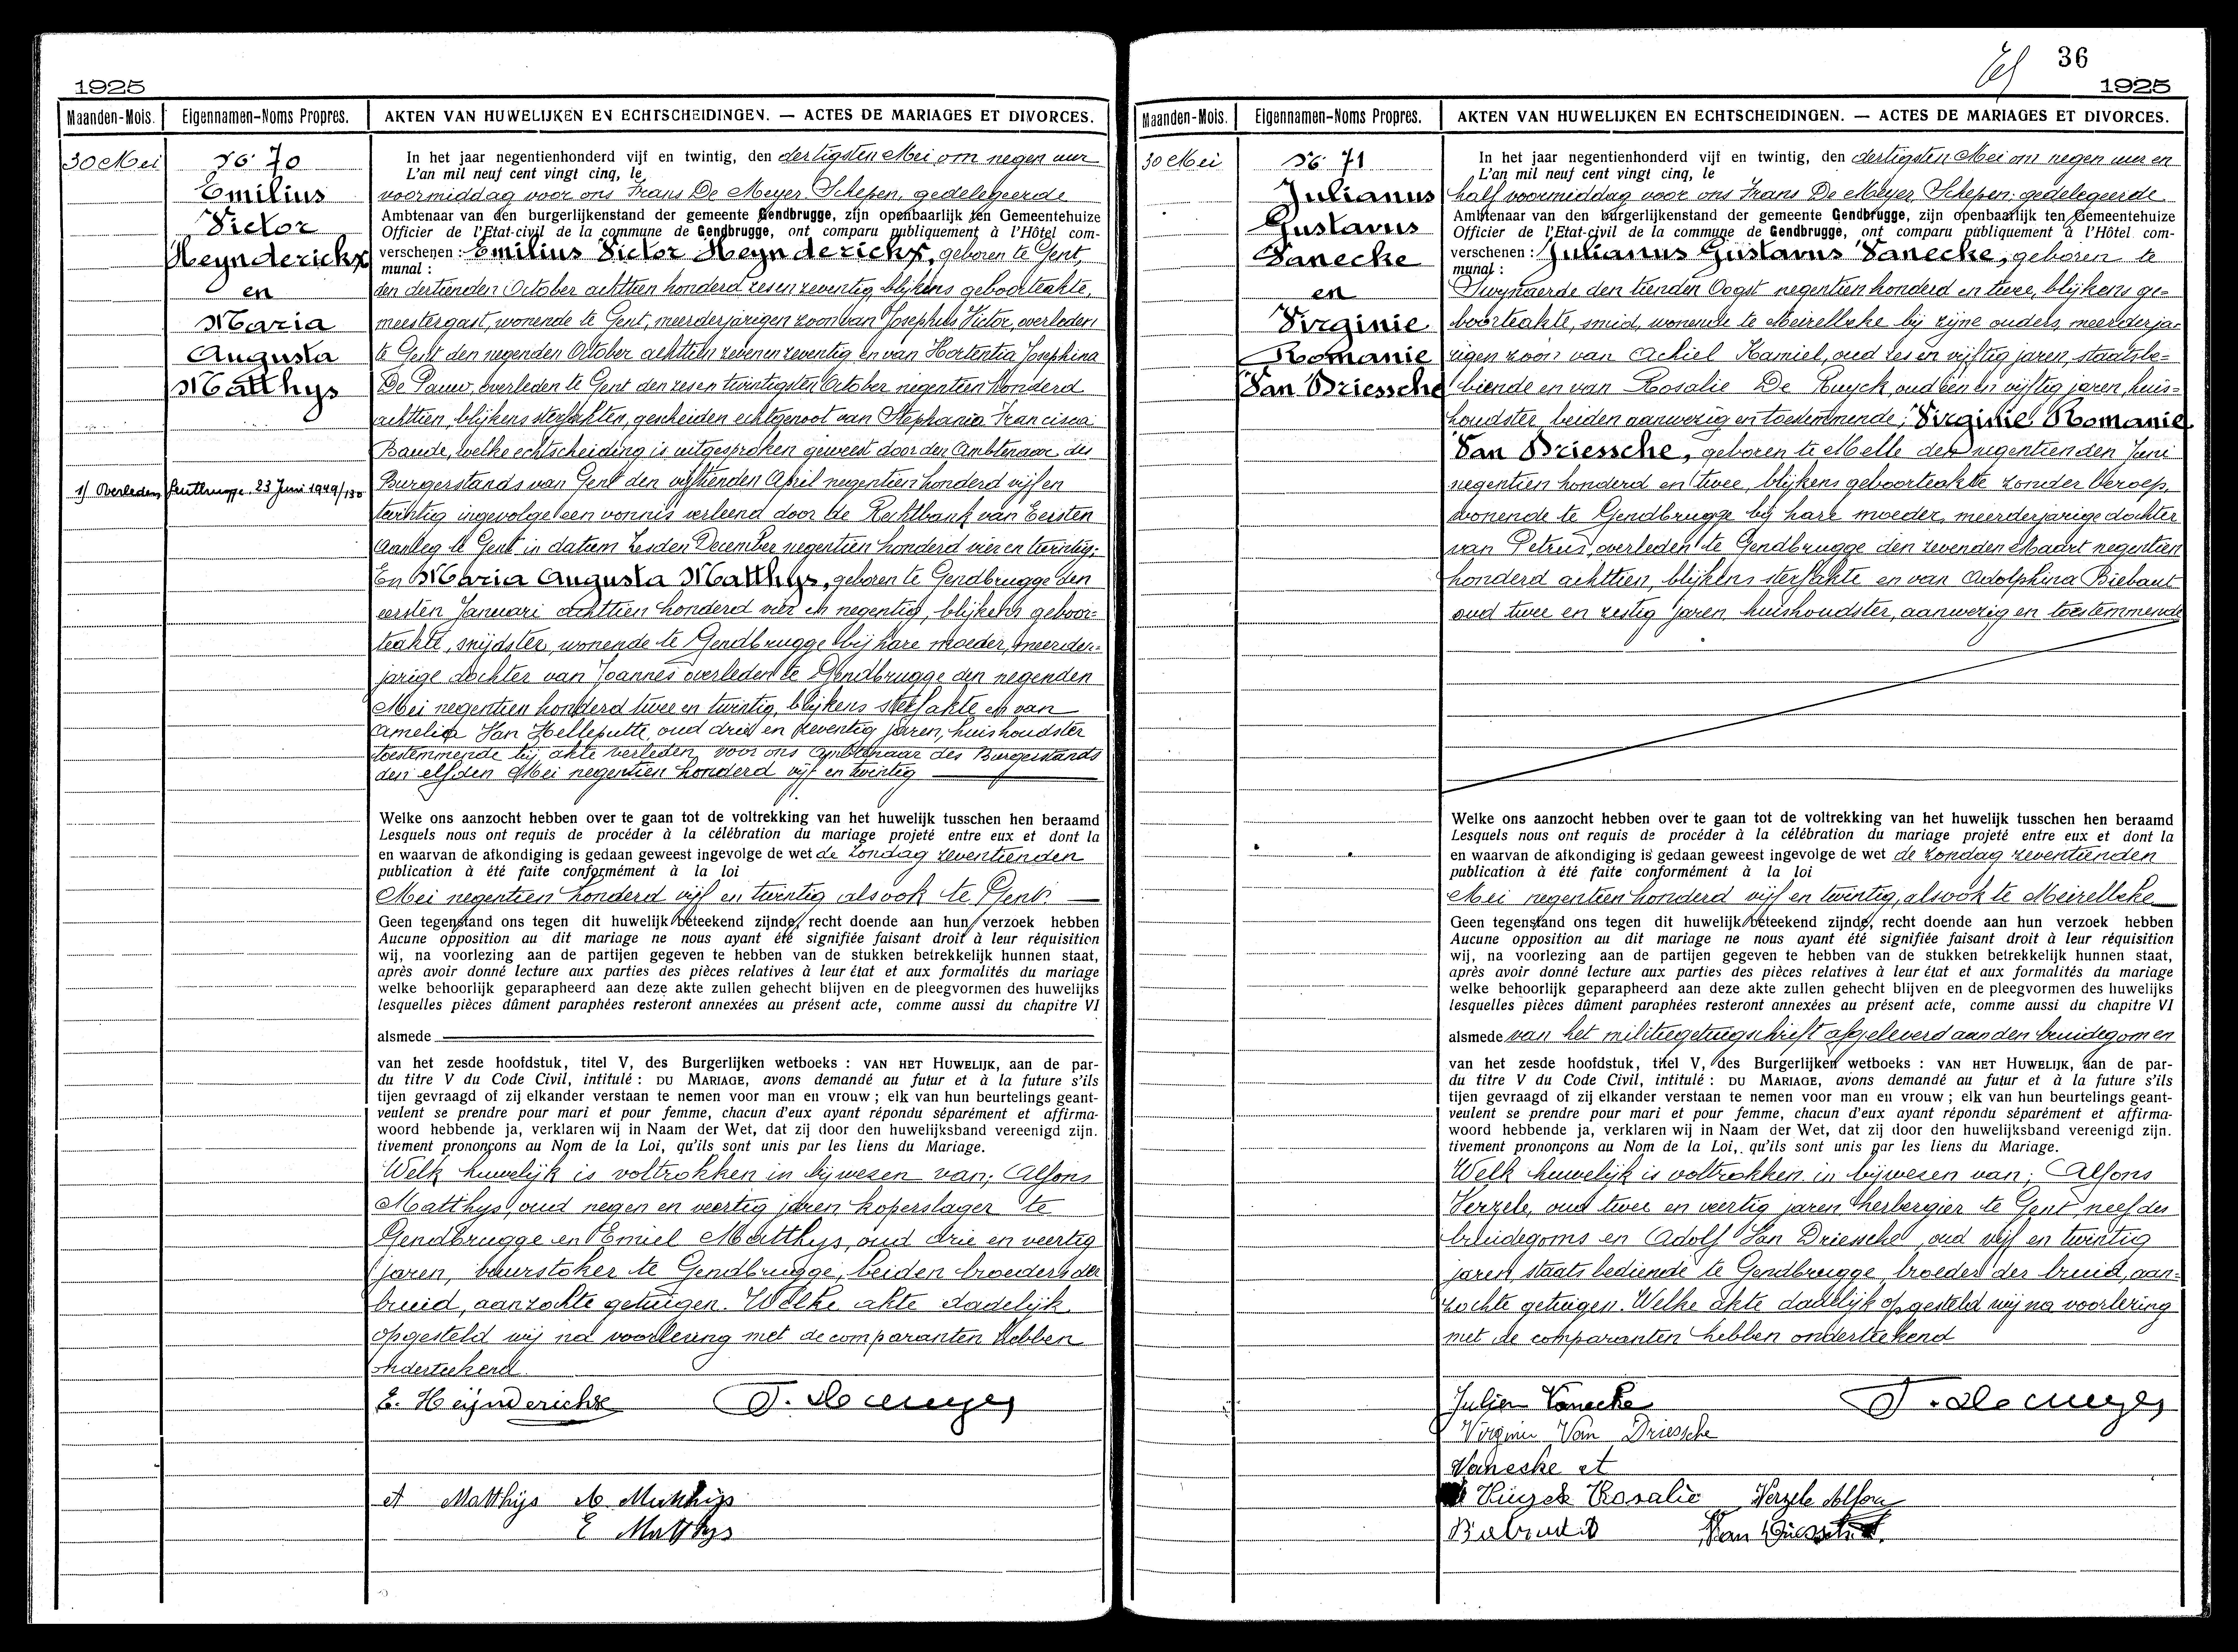 1925
Maanden-Mois. Eigennamen-Noms Propres. AKTEN VAN HUWELIJKEN EN ECHTSCHEIDINGEN. — ACTES DE MARIAGES ET DIVORCES.
30 Mei
No 70
Emilius
Victor
Heynderickx
en
Maria
Augusta
Matthys
1) Overleden Gentbrugge, 23 Juni 1949/130
In het jaar negentienhonderd vijf en twintig, den dertigsten Mei om negen uur
L'an mil neuf cent vingt cinq, le
voormiddag voor ons Frans De Meyer, Schepen, gedelegeerde
Ambtenaar van den burgerlijkenstand der gemeente Gendbrugge, zijn openbaarlijk ten Gemeentehuize
Officier de l'Etat-civil de la commune de Gendbrugge, ont comparu publiquement à l'Hôtel com-
verschenen : Emilius Victor Heynderickx, geboren te Gent,
munal :
den dertienden October achttien honderd zes en zeventig, blijkens geboorteakte,
meestergast, wonende te Gent, meerderjarigen zoon van Josephus Victor, overleden
te Gent den negenden October achttien zeven en zeventig en van Hortentia Josephina
De Pauw, overleden te Gent den zes en twintigsten October negentien honderd
achttien, blijkens sterfakten, gescheiden echtgenoot van Stephania Francisca
Baude, welke echtscheiding is uitgesproken geweest door den Ambtenaar des
Burgerstands van Gent den vijftienden April negentien honderd vijf en
twintig ingevolge een vonnis verleend door de Rechtbank van Eersten
Aanleg te Gent in datum zesden December negentien honderd vier en twintig;
En Maria Augusta Matthys, geboren te Gendbrugge den
eersten Januari achttien honderd vier en negentig, blijkens geboor-
teakte, snijdster, wonende te Gendbrugge bij hare moeder, meerder-
jarige dochter van Joannes overleden te Gendbrugge den negenden
Mei negentien honderd twee en twintig, blijkens sterfakte en van
Amelia Van Helleputte, oud drie en zeventig jaren, huishoudster
toestemmende bij akte verleden voor ons Ambtenaar des Burgerstands
den elfden Mei negentien honderd vijf en twintig
Welke ons aanzocht hebben over te gaan tot de voltrekking van het huwelijk tusschen hen beraamd
Lesquels nous ont requis de procéder à la célébration du mariage projeté entre eux et dont la
en waarvan de afkondiging is gedaan geweest ingevolge de wet de zondag zeventienden
publication à été faite conformément à la loi
Mei negentien honderd vijf en twintig alsook te Gent.
Geen tegenstand ons tegen dit huwelijk beteekend zijnde, recht doende aan hun verzoek hebben
Aucune opposition au dit mariage ne nous ayant été signifiée faisant droit à leur réquisition
wij, na voorlezing aan de partijen gegeven te hebben van de stukken betrekkelijk hunnen staat,
après avoir donné lecture aux parties des pièces relatives à leur état et aux formalités du mariage
welke behoorlijk geparapheerd aan deze akte zullen gehecht blijven en de pleegvormen des huwelijks
lesquelles pièces dûment paraphées resteront annexées au présent acte, comme aussi du chapitre VI
alsmede
van het zesde hoofdstuk, titel V, des Burgerlijken wetboeks : VAN HET HUWELIJK, aan de par-
du titre V du Code Civil, intitulé : DU MARIAGE, avons demandé au futur et à la future s'ils
tijen gevraagd of zij elkander verstaan te nemen voor man en vrouw ; elk van hun beurtelings geant-
veulent se prendre pour mari et pour femme, chacun d'eux ayant répondu séparément et affirma-
woord hebbende ja, verklaren wij in Naam der Wet, dat zij door den huwelijksband vereenigd zijn.
tivement prononçons au Nom de la Loi, qu'ils sont unis par les liens du Mariage.
Welk huwelijk is voltrokken in bijwesen van; Alfons
Matthys, oud negen en veertig jaren koperslager te
Gendbrugge en Emiel Matthys, oud drie en veertig
jaren, vuurstoker te Gendbrugge, beiden broeders der
bruid, aanzochte getuigen. Welke akte dadelijk
opgesteld wij na voorlezing met de comparanten hebben
onderteekend
E. Heijnderickx F. De Meyer
Matthijs A. Matthijs
E Matthys
36
1925
Maanden-Mois. Eigennamen-Noms Propres. AKTEN VAN HUWELIJKEN EN ECHTSCHEIDINGEN. — ACTES DE MARIAGES ET DIVORCES.
30 Mei
No 71
Julianus
Gustavus
Vanecke
en
Virginie
Romanie
Van Driessche
In het jaar negentienhonderd vijf en twintig, den dertigsten Mei om negen uur en
L'an mil neuf cent vingt cinq, le
half voormiddag voor ons Frans De Meyer, Schepen, gedelegeerde
Ambtenaar van den burgerlijkenstand der gemeente Gendbrugge, zijn openbaarlijk ten Gemeentehuize
Officier de l'Etat-civil de la commune de Gendbrugge, ont comparu publiquement à l'Hôtel com-
verschenen : Julianus Gustavus Vanecke, geboren te
munal :
Swynaerde den tienden Oogst negentien honderd en twee, blijkens ge-
boorteakte, smid, wonende te Meirelbeke bij zijne ouders, meerderja-
rigen zoon van Achiel Kamiel, oud zes en vijftig jaren, staatsbe-
diende en van Rosalie De Ruyck, oud een en vijftig jaren, huis-
houdster, beiden aanwezig en toestemmende; Virginie Romanie
Van Driessche, geboren te Melle den negentienden Juni
negentien honderd en twee, blijkens geboorteakte zonder beroep,
wonende te Gendbrugge bij hare moeder, meerderjarige dochter
van Petrus, overleden te Gendbrugge den zevenden Maart negentien
honderd achttien, blijkens sterfakte en van Adolphina Biebaut
oud twee en zestig jaren, huishoudster, aanwezig en toestemmende
Welke ons aanzocht hebben over te gaan tot de voltrekking van het huwelijk tusschen hen beraamd
Lesquels nous ont requis de procéder à la célébration du mariage projeté entre eux et dont la
en waarvan de afkondiging is gedaan geweest ingevolge de wet de zondag zeventienden
publication à été faite conformément à la loi
Mei negentien honderd vijf en twintig, alsook te Meirelbeke
Geen tegenstand ons tegen dit huwelijk beteekend zijnde, recht doende aan hun verzoek hebben
Aucune opposition au dit mariage ne nous ayant été signifiée faisant droit à leur réquisition
wij, na voorlezing aan de partijen gegeven te hebben van de stukken betrekkelijk hunnen staat,
après avoir donné lecture aux parties des pièces relatives à leur état et aux formalités du mariage
welke behoorlijk geparapheerd aan deze akte zullen gehecht blijven en de pleegvormen des huwelijks
lesquelles pièces dûment paraphées resteront annexées au présent acte, comme aussi du chapitre VI
alsmede van het militiegetuigschrift afgeleverd aan den bruidegom en
van het zesde hoofdstuk, titel V, des Burgerlijken wetboeks : VAN HET HUWELIJK, aan de par-
du titre V du Code Civil, intitulé : DU MARIAGE, avons demandé au futur et à la future s'ils
tijen gevraagd of zij elkander verstaan te nemen voor man en vrouw ; elk van hun beurtelings geant-
veulent se prendre pour mari et pour femme, chacun d'eux ayant répondu séparément et affirma-
woord hebbende ja, verklaren wij in Naam der Wet, dat zij door den huwelijksband vereenigd zijn.
tivement prononçons au Nom de la Loi, qu'ils sont unis par les liens du Mariage.
Welk huwelijk is voltrokken in bijwesen van; Alfons
Verzele, oud twee en veertig jaren, herbergier te Gent, neef des
bruidegoms en Adolf Van Driessche, oud vijf en twintig
jaren, staatsbediende te Gendbrugge, broeder der bruid, aan-
zochte getuigen. Welke akte dadelijk opgesteld wij na voorlezing
met de comparanten hebben onderteekend
Julien Vanecke F. De Meyer
Virginie Van Driessche
Vanecke
Ruyck Rosalie Verzele Alfons
Van Driessche